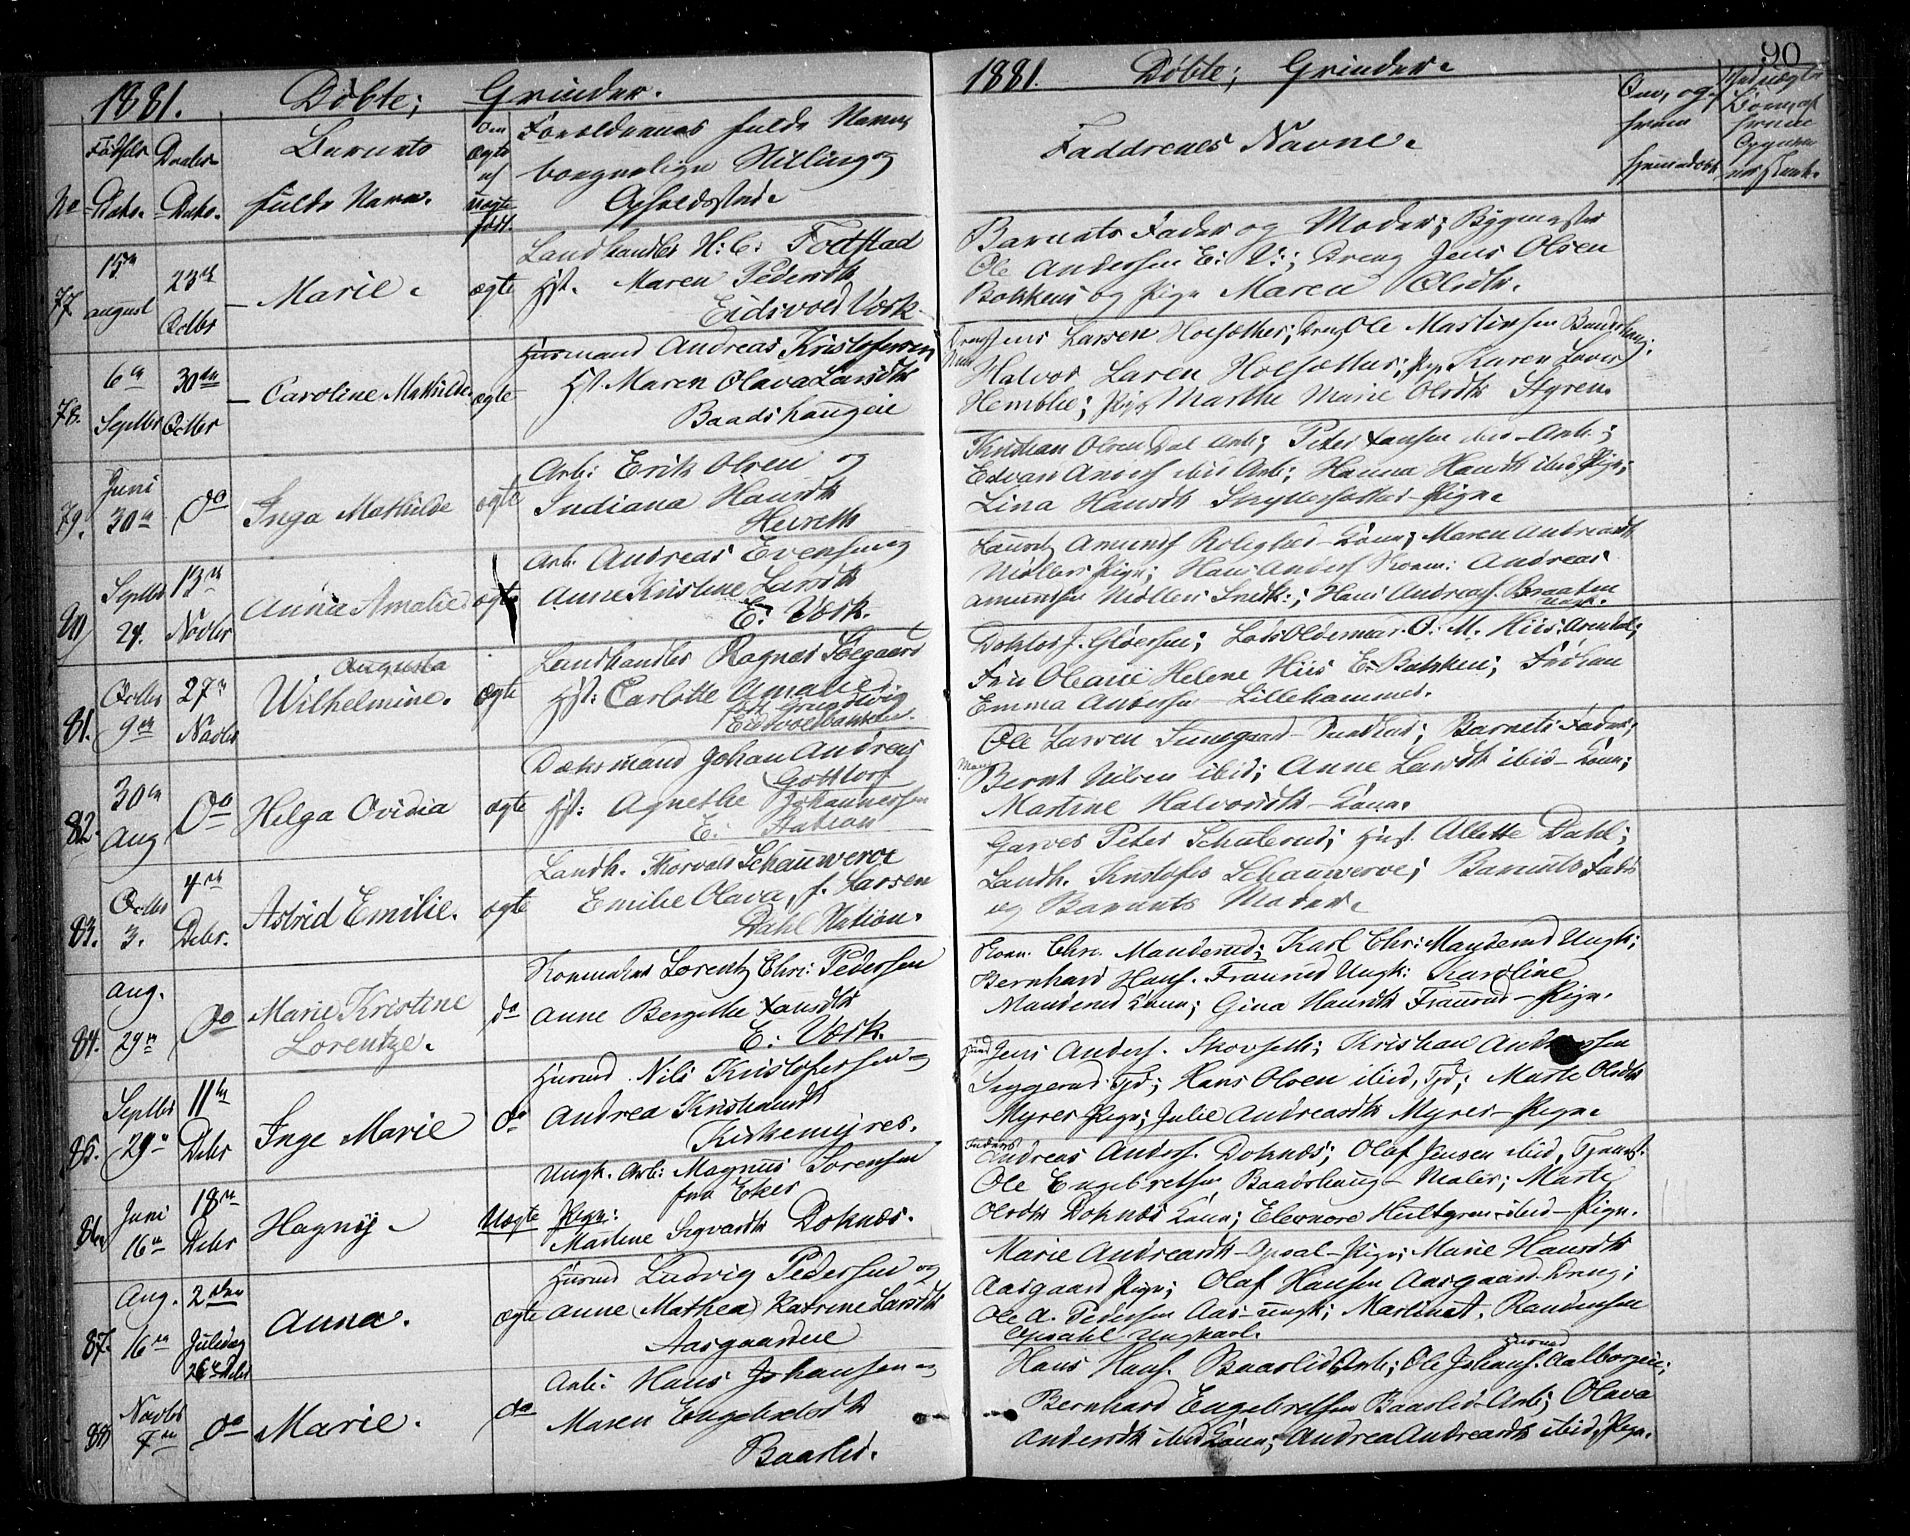 1881. Döbte; Qvinder.
No
Födsels Dato.
Daabs Dato.
Barnets fulde Navn.
Om ægte el. uægte födt.
Forældrenes fulde Navne, borgerlige Stilling og Opholdssted.
77
15de august
23de Octbr
Marie.
ægte
Landhandler H. C. Fodstad
Hst. Maren Pedersdtr
Eidsvold Værk
78.
6te Septbr
30te Octbr
Caroline Mathilde.
ægte
Husmand Andreas Kristofersen
Hst Maren Olava Larsdtr
Baadshaugeie
79.
Juni 30te
do
Inga Mathilde
ægte
Arb: Erik Olsen og
Indiana Hansdtr
80
Septbr 29.
13de Novbr
Anna Amalie
ægte
Arb. Andreas Evensen og
Anne Kristine Larsdtr
E. Værk.
81.
Octbr 9de
27de Novbr
Augusta
Wilhelmine.
ægte
Landhandler Ragnar Solgaard
Hst: Carlotte Amalie
f. Grundtvig
Eidsvoldbakken.
82.
30te Aug
do
Helga Ovidia
ægte
Dæksmand Johan Andreas
Gottlorf
Hst: Agnethe Johannessen
E. Station
83.
Octbr 3.
4de Debr.
Astrid Emilie.
ægte
Landh. Thorvald Schauwerve
Emilie Olava, f. Larsen
Dahl Station.
84.
Aug. 29de
do
Marie Kristine
Lorentze.
do
Lorentz Chr: Pedersen
Anne Bergithe Hansdtr
E. Værk.
85.
Septbr 29de
11te Debr
Inge Marie
do
Husmd. Nils Kristofersen og
Andrea Kristiansdtr
Kirkemyres.
86.
Juni 16de
18de Debr
Hagny
Uægte
Ungk. Arb: Magnus Sorensen
fra Eker
Pige:
Martine Sigvardtr Doknæs.
87.
Aug. 16de
2den Juledag 26de Debr
Anna.
ægte
Husmd Ludvig Pedersen og
Anne (Mathea) Katrine Larsdtr
Aasgaardeie
88
Novbr 7de
do
Marie.
do
Arb: Hans Johansen og
Maren Engebretsdtr
Baarlid.
1881. Döbte; Qvinder.
90
Faddrenes Navne.
Om, og hvem hjemmedöbt
Barnets Fader og Moder; Bygmester
Ole Andersen E. V.; Dreng Jens Olsen
Bakkens og Pige Maren Olsdtr.
Dreng Jens Larsen Holsæther; Dreng Ole Martinsen Baadshaug;
Halvor Larsen Holsæther; Pige Karen Lovise
Hemblie; Pige Marthe Marie Olsdtr Styren.
Kristian Olsen Dal Arb; Peter Hansen ibid Arb;
Edvard Anders. ibid Arb; Hanna Hansdtr ibid, Pige;
Lina Hansdtr Pige
Laurits Amunds. Rolighed Kone; Maren Andreasdtr
Möller Pige; Hans Anders. Andreas
Amundsen Möller Snedk.; Hans Andreas. Braaten
Ungk.
Doktor J. Gloersen; O. M. Hiis, Arendal;
Fru Olearie Helene Hiis E. Bakken; Fröken
Emma Andersen Lillehammer.
Ole Larsen Barnets Fader;
Bernt Nilsen ibid; Anne Larsdtr ibid Kone;
Martine Halvorsdtr Kone.
Garver Peter Schulerud; Hust. Allette Dahl;
Landh. Kristofer Schauwerve; Barnets Fader
og Barnets Moder.
Chr. Manderud; Karl Chr: Manderud Ungk;
Bernhard Hans. Fraurud Ungk: Karoline
Manderud Kone; Gina Hansdtr Fraurud Pige.
Husmd Jens Anders. Skovseth; Kristian Andersen
Seggerud Tjd; Hans Olsen ibid, Tjd; Marte Olsdtr
Myrer Pige; Julie Andreasdtr Myrer Pige
Andreas Anders. Doknæs; Olaf Jensen ibid,
Ole Engebretsen Baadshaug Maler; Marte
Olsdtr Doknæs Kone; Eleonore Hultgren ibid Pige.
Marie Andreasdtr Opsal Pige; Marie Hansdtr
Aasgaard Pige; Olaf Hansen Aasgaard Dreng;
Ole A. Pedersen Aas Ungk; Martinat. Randersen
Opsahl Ungkarl.
Husmd
Hans Hans. Baarlid Arb; Ole Johans. Aalborgeie;
Bernhard Engebretsen Baarlid Arb; Olava
Andersdtr ibid Kone; Andrea Andreasdtr ibid, Pige.